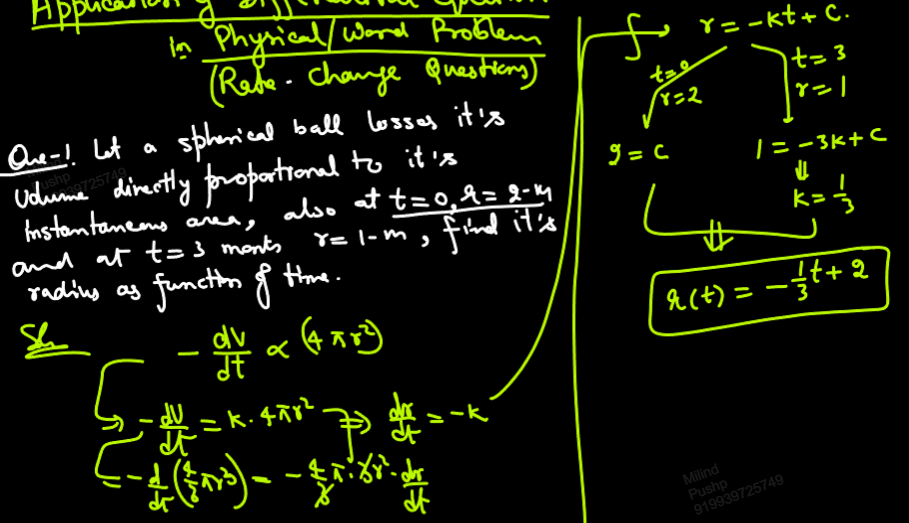 Application of Differential Equation
in Physical/Word Problem
(Rate-Change Questions)
Que-1. Let a spherical ball losses it's
volume directly proportional to it's
instantaneous area, also at t=0, r=2-m
and at t=3 months r=1-m, find it's
radius as function of time.
Sln
- dV/dt ∝ (4πr²)
- dV/dt = k·4πr² ⇒ dr/dt = -k
= - d/dt (4/3 πr³) = - 4/3 π·3r²·dr/dt
∫ → r = -kt + c.
t=0 t=3
r=2 r=1
2 = c 1 = -3k + c
⇓
k = 1/3
⇓
r(t) = - 1/3 t + 2
Milind
Pushp
919939725749